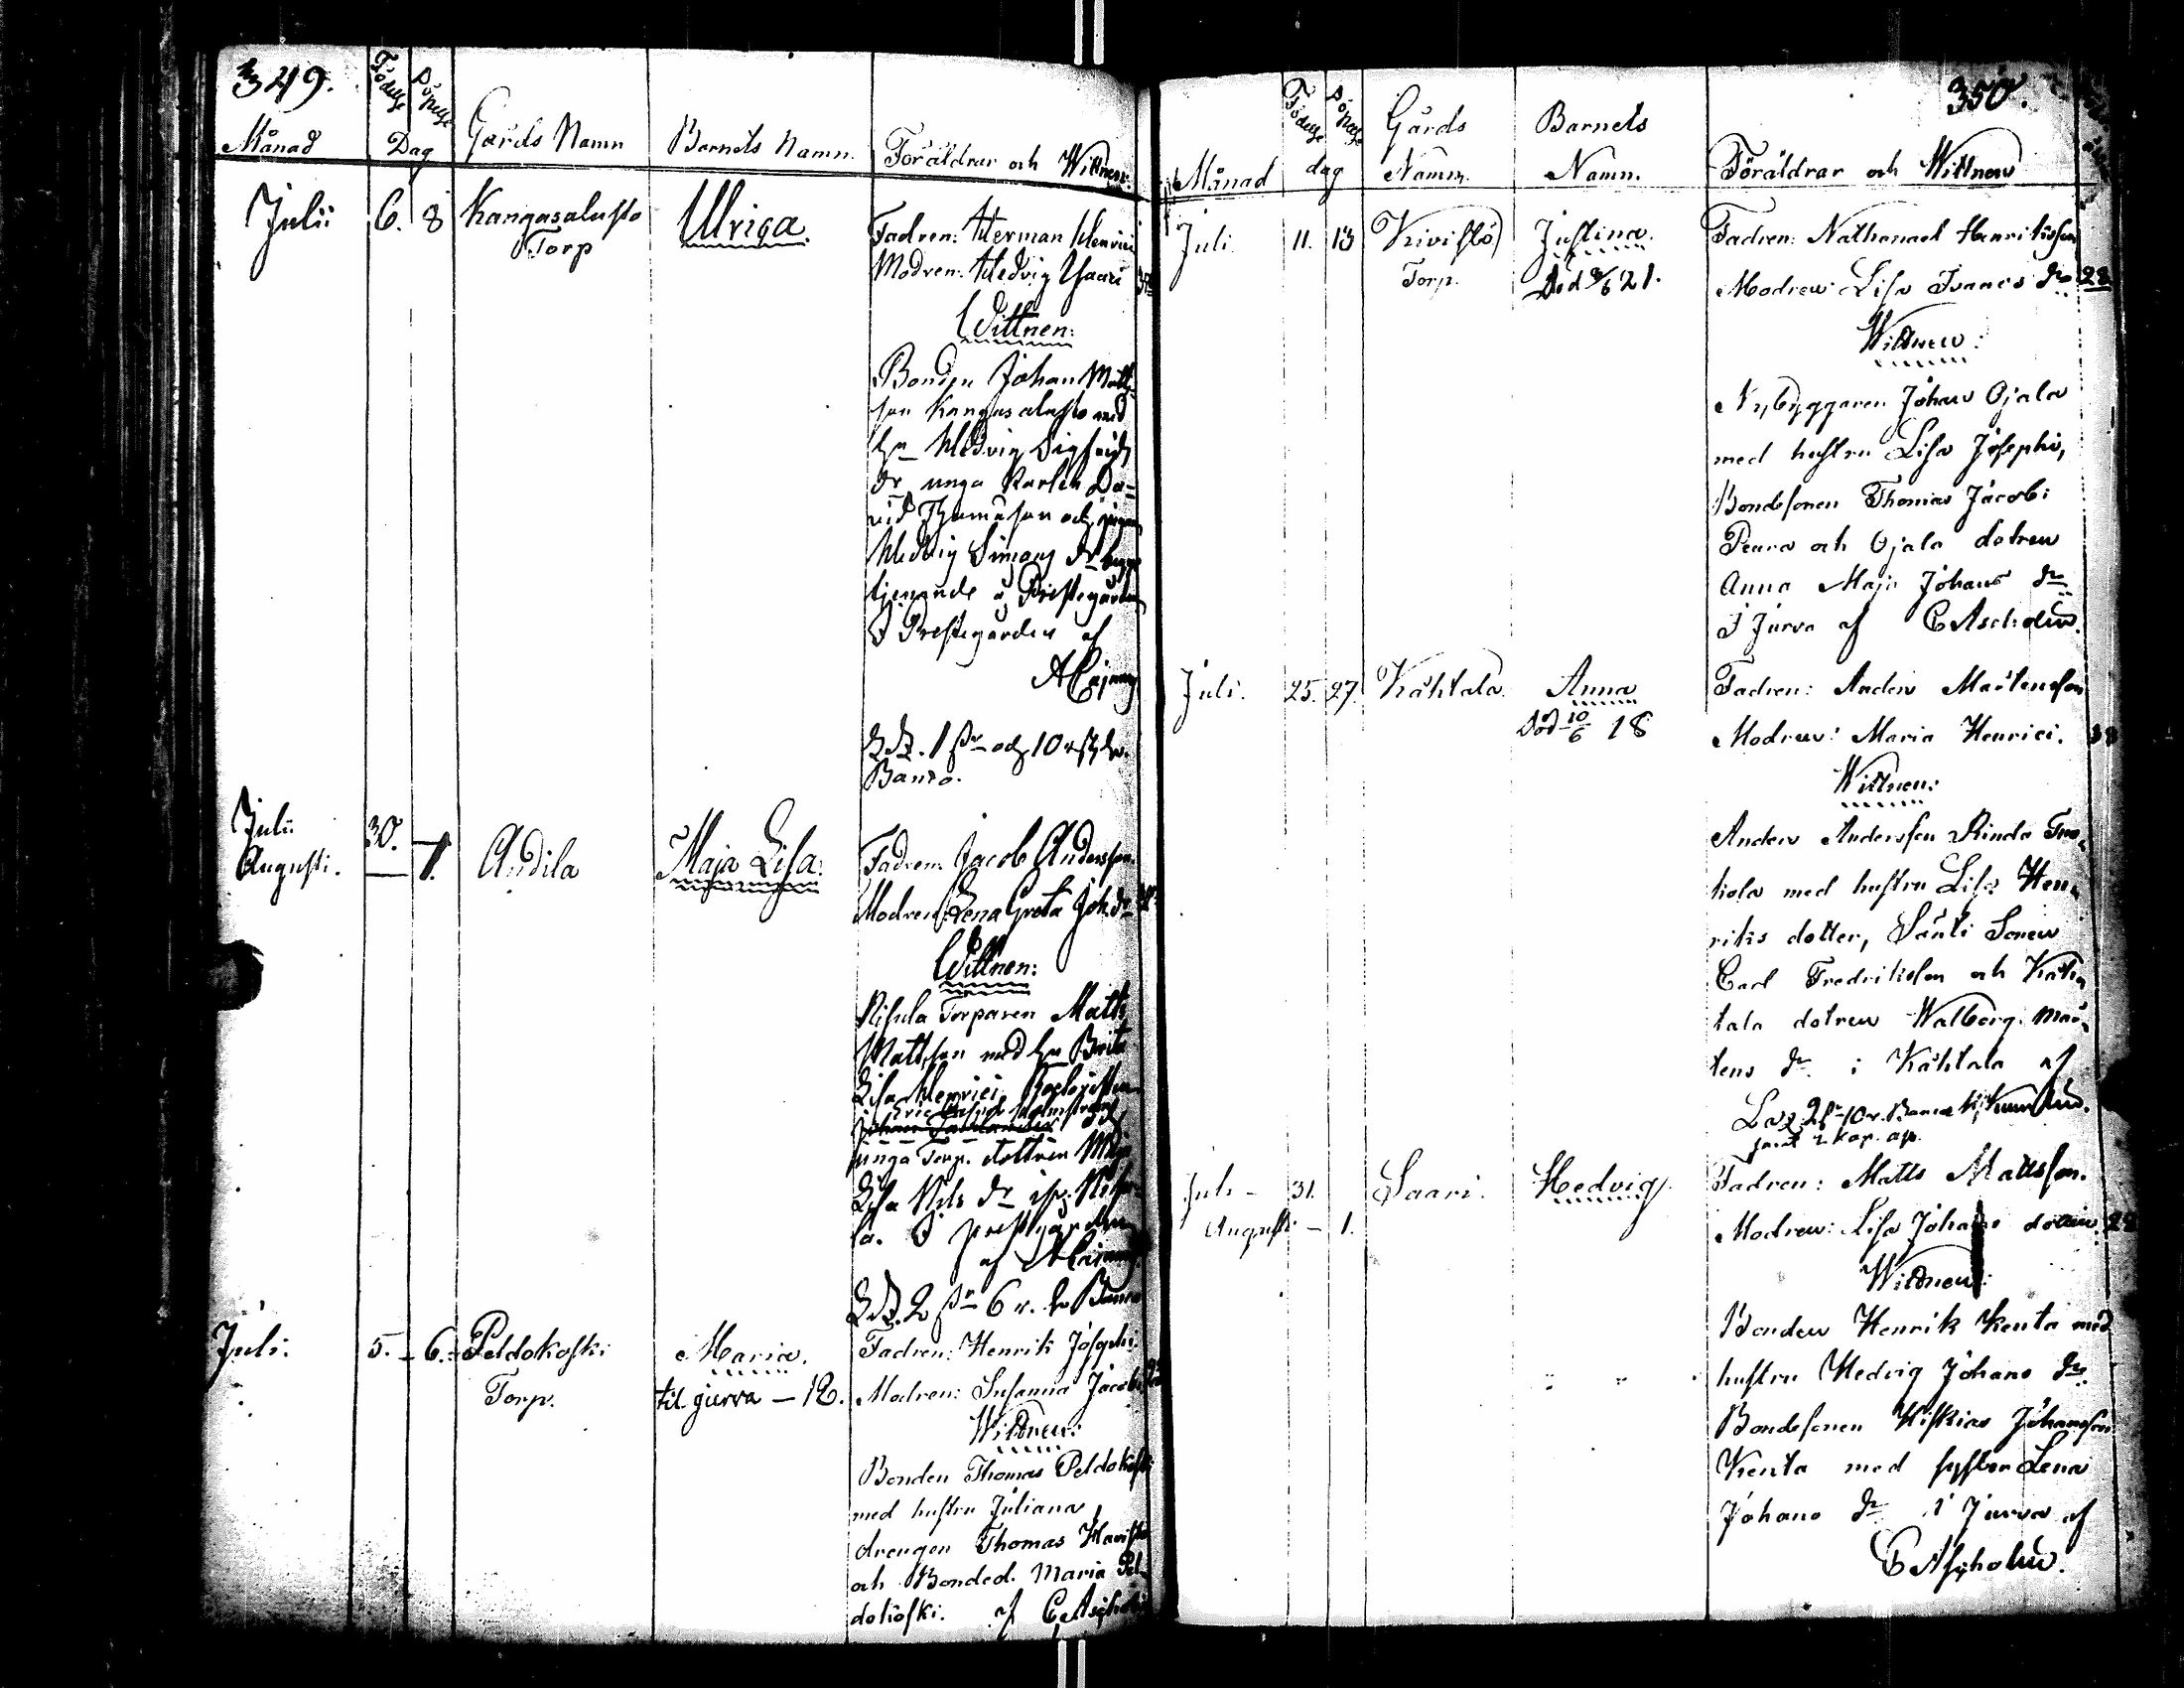 349.
Födelse Döpelse
Månad Dag Gårds Namn Barnets Namn. Föräldrar och Wittnen.
Julii 6. 8 Kangasalusto Ulrica. Fadren: Herman Henrici
Torp Modren: Hedvig
Wittnen:
Bonden Johan Matts
son Kangasalusto med
Hu Hedvig Sigfrids
dr unga Karlen Da=
vid Thomasson och pigan
Hedvig Simons dr begge
tjenande i Prestegården
I Prestegården af
A Cajanus
1 och 10
Banco.
Julii 30.
Augusti. 1. Andila Maja Lisa. Fadren: Jacob Andersson.
Modren: Lena Greta Joh. dr
Wittnen:
Nisula Torparen Matts
Mattsson med hu Brita
Lisa Henrici
Eric
unga Torp. dottren Maja
Lisa Nils dr
la. I prestegården
af A Cajanus
2 6 r. Banco
Juli. 5. 6. Peldokoski Maria. Fadren: Henrik Josephi.
Torp. til jurva – 12. Modren: Susanna Jacobi
Wittnen:
Bonden Thomas Peldokoski
med hustru Juliana,
drengen Thomas Haristo
och Bonded. Maria Pel
dokoski. af C. Ascholin
350.
Födelse Döpelse Gårds Barnets
Månad dag Namn. Namn. Föräldrar och Wittnen
Juli 11. 13 Kivistö Justina. Fadren: Nathanael Henriksson
Torp. Död 9/6 21. Modren: Lisa Isaacs dr 22
Wittnen:
Nybyggaren Johan Ojala
med hustru Lisa Josephi,
Bondesonen Thomas Jacobi
Peura och Ojala dotren
Anna Maja Johans dr
I Jurva af C Ascholin.
Juli. 25. 27. Kåhtala. Anna Fadren: Anders Mårtensson
Död 10/6 18 Modren: Maria Henrici. 38
Wittnen:
Anders Andersson Rinda Tuo
kola med hustru Lisa Hen
riks dotter, Sänti Sonen
Carl Fredriksson och Kåh
tala dotren Walborg Mår
tens dr i Kåhtala af
2 10 r. Banco
2 kop.
Juli – 31. Saari. Hedvig. Fadren: Matts Mattsson.
Augusti – 1. Modren: Lisa Johans dotter. 28
Wittnen:
Bonden Henrik Kenta med
hustru Hedvig Johans dr
Bondesonen Hiskias Johansson
Kenta med syster Lena
Johans dr i Jurva af
C Ascholin.